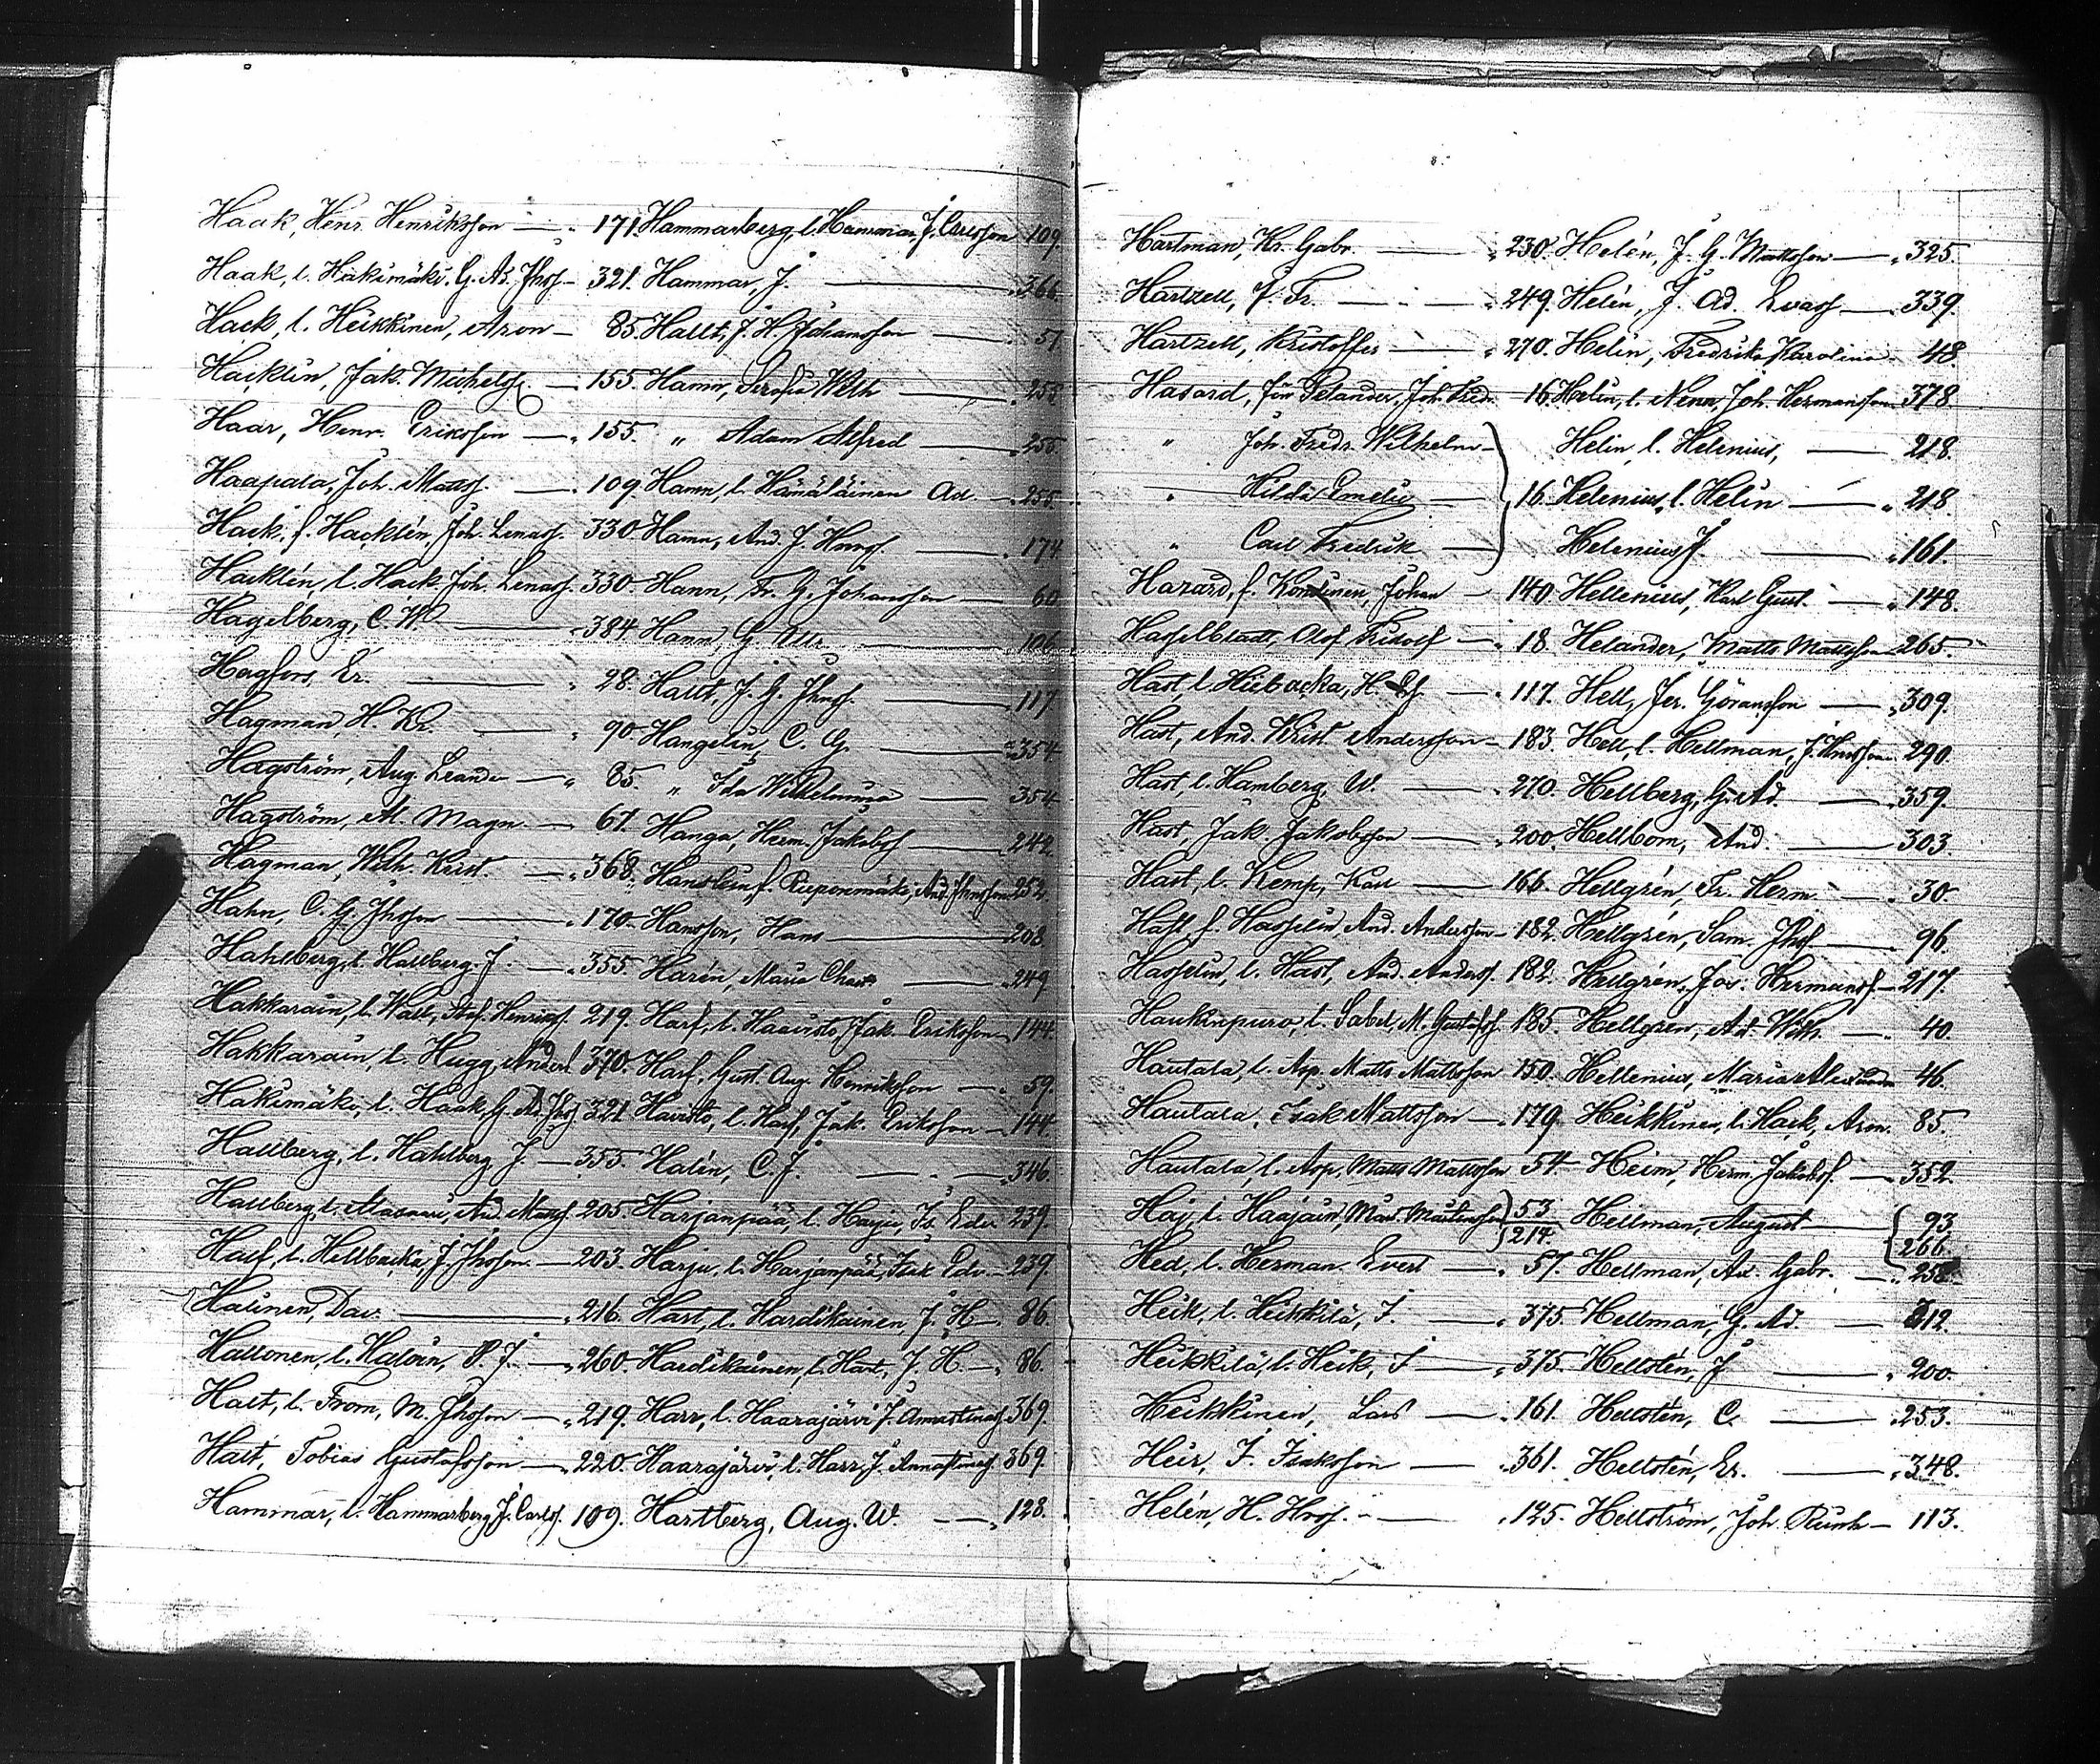 Haak, Henr. Henriksson — 171.
Haak, l. Hakimäki, G. Ad. Jhss. — 321.
Hack, l. Heikkinen, Aron — 85.
Hacklin, Jak. Michelss. — 155.
Haar, Henr. Eriksson — 155.
Haapala, Joh. Matss. — 109.
Hack, f. Hacklén, Joh. Lenass. 330.
Hacklén, l. Hack, Joh. Lenass. 330.
Hagelberg, C. W. — 384.
Hagfors, Er. — 28.
Hagman, H. Kr. — 90.
Hagström, Aug. Leander — 85.
Hagström, Al. Magn. — 67.
Hagman, Wilh. Krist. — 368.
Hahn, C. G. Jhsson — 170.
Hahlberg, l. Hallberg J. — 355.
Hakkarain, l. Wall, Henrikss. 219.
Hakkarain, l. Hugg, Anders 370.
Hakimäki, l. Haak, G. Ad. Jhss. 321.
Hallberg, l. Hahlberg J. — 355.
Hallberg, l. And. Matss. 205.
Half, l. Hellbacka, J. Jhsson — 203.
Halinen, Dav. — 216.
Hallonen, l. P. J. — 260.
Halt, l. From, M. Jhsson — 219.
Halt, Tobias Gustafsson — 220.
Hammar, l. Hammarberg, J. Carlss. 109.
Hammarberg, l. Hammar, J. Carlsson 109.
Hammar, J. — 366.
Hallt, J. H. Johansson — 51
Hamn, Serafia Wilh — 255.
" Adam Alfred — 255.
Hamn, l. Hämäläinen Ad. — 255.
Hamn, And. J. Hnrss. — 174
Hann, Fr. G. Johansson — 60
Hamn, G. — 106
Hallt, J. G. Jhnss. — 117
Hangelin, C. G. — 354
" Ida Wilhelmina — 354
Hanga, Herm. Jakobss. — 242
Hanslin f. And. Jhnsson 252
Hansson, Hans — 208
Harin, Maria — 249
Harf, l. Haavisto, Jak. Eriksson 144.
Harf, Gust. Aug. Henriksson — 59.
Havisto, l. Harf, Jak. Eriksson — 144.
Halén, C. J. — 346.
Harjanpää, l. Harju, Is. Edv. 239.
Harju, l. Harjanpää, Isak Edv. — 239
Hart, l. Hardikainen, J. H. — 86.
Hardikainen, l. Hart, J. H. — 86
Harr, l. Haarajärvi J. Annastinass. 369
Haarajärvi, l. Harr, J. Annastinass. 369.
Hartberg, Aug. W. — 128.
Hartman, Kr. Gabr. — 230.
Hartzell, J. Fr. — 249.
Hartzell, Kristoffer — 270.
Hasard, förr Selander, Joh. Fredr. 16.
" Joh. Fredr. Wilhelm —
" Hilda Emelie — 16.
" Carl Fredrik —
Hazard, f. Kontinen, Johan — 140
Hasselblatt, Olof Fridolf — 18.
Hast, l. Hiibacka, H. — 117.
Hast, And. Krist. Andersson — 183.
Hast, l. Hamberg, W. — 270.
Hast, Jak. Jakobsson — 200.
Hast, l. Kemp, Karl — 166.
Hast, f. Hasselin, And. Andersson — 182.
Hasselin, l. Hast, And. Anderss. 182.
Haukinpuro, l. Sabel, M. Gustafss. 185.
Hautala, l. Asp, Matts Mattsson 150.
Hautala, Isak Mattsson — 179.
Hautala, l. Asp, Matts Mattsson 54.
Haj, l. Haajain, Mart. Martinsson 53
214.
Hed, l. Herman. Evert — 57.
Heik, l. Heikkilä, I. — 375.
Heikkilä, l. Heik, I. — 375.
Heikkinen, Lars — 161.
Heir, I. Isaksson — 361.
Helén, H. Hnss. — 125.
Helén, J. G. Mattsson — 325.
Helin, J. Ad. — 339.
Helin, Fredrika Karolina — 48
Helin, l. Nenn, Joh. Hermansson 378
Helin, l. Helenius, — 218.
Helenius, l. Helin — 218.
Helenius, J. — 161.
Hellenius, Karl Gust. — 148.
Helander, Matts Mattsson 265.
Hell, Jer. Göransson — 309.
Hell, l. Hellman, J. 290.
Hellberg, G. Ad. — 359.
Hellbom, And. — 303.
Hellgrén, Fr. Herm. — 30.
Hellgrén, Sam. Jhss. — 96.
Hellgrén, Jos. Hermanss. — 217.
Hellgren, Ad. Wilh. — 40.
Hellenius, Maria Alexandra 46.
Heikkinen, l. Hack, Aron. 85.
Heim, Herm. Jakobss. — 352.
Hellman, August — 93
266.
Hellman, Ad. Gabr. — 258.
Hellman, G. Ad. — 312.
Hellstén, J. — 200.
Hellstén, C. — 253.
Hellstén, Er. — 348.
Hellström, Joh. Runh — 113.